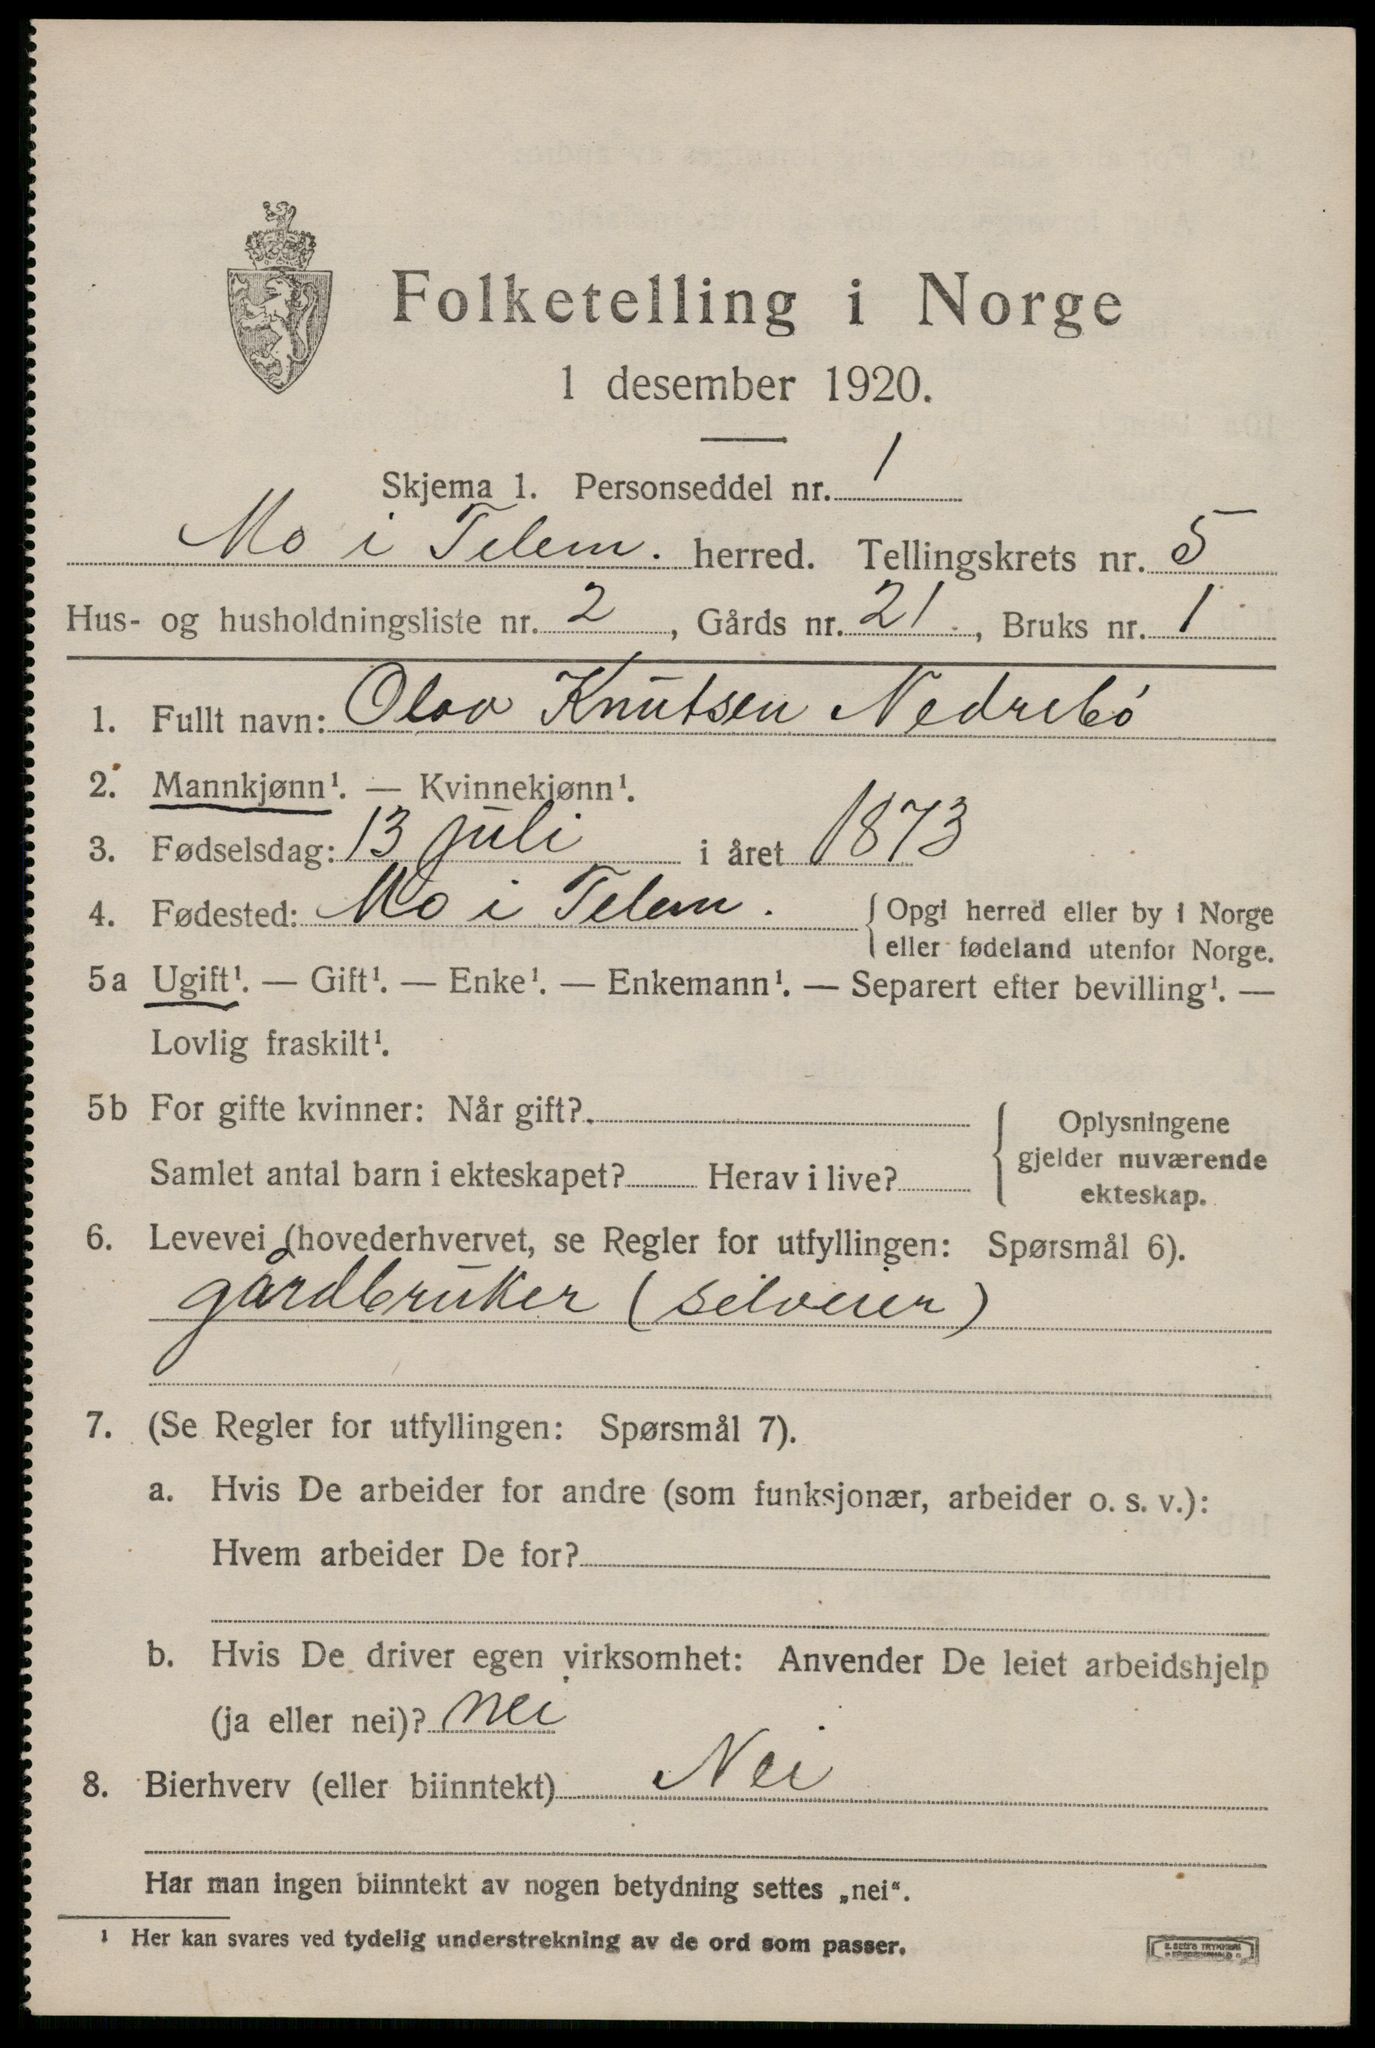 Folketelling i Norge
1 desember 1920.
Skjema 1. Personseddel nr. 1
Mo i Telem. herred. Tellingskrets nr. 5
Hus- og husholdningsliste nr. 2, Gårds nr. 21, Bruks nr. 1
1. Fullt navn: Olav Knutsen Nedrebó
2. Mannkjønn¹. — Kvinnekjønn¹.
3. Fødselsdag: 13 juli i året 1873
4. Fødested: Mo i Telem. { Opgi herred eller by i Norge
eller fødeland utenfor Norge.
5a Ugift¹. — Gift¹. — Enke¹. — Enkemann¹. — Separert efter bevilling¹. —
Lovlig fraskilt¹.
5b For gifte kvinner: Når gift?
Samlet antal barn i ekteskapet? Herav i live?
{ Oplysningene
gjelder nuværende
ekteskap.
6. Levevei (hovederhvervet, se Regler for utfyllingen: Spørsmål 6).
gårdbruker (selveier)
7. (Se Regler for utfyllingen: Spørsmål 7).
a. Hvis De arbeider for andre (som funksjonær, arbeider o. s. v.):
Hvem arbeider De for?
b. Hvis De driver egen virksomhet: Anvender De leiet arbeidshjelp
(ja eller nei)? nei
8. Bierhverv (eller biinntekt) Nei
Har man ingen biinntekt av nogen betydning settes „nei“.
¹ Her kan svares ved tydelig understrekning av de ord som passer.